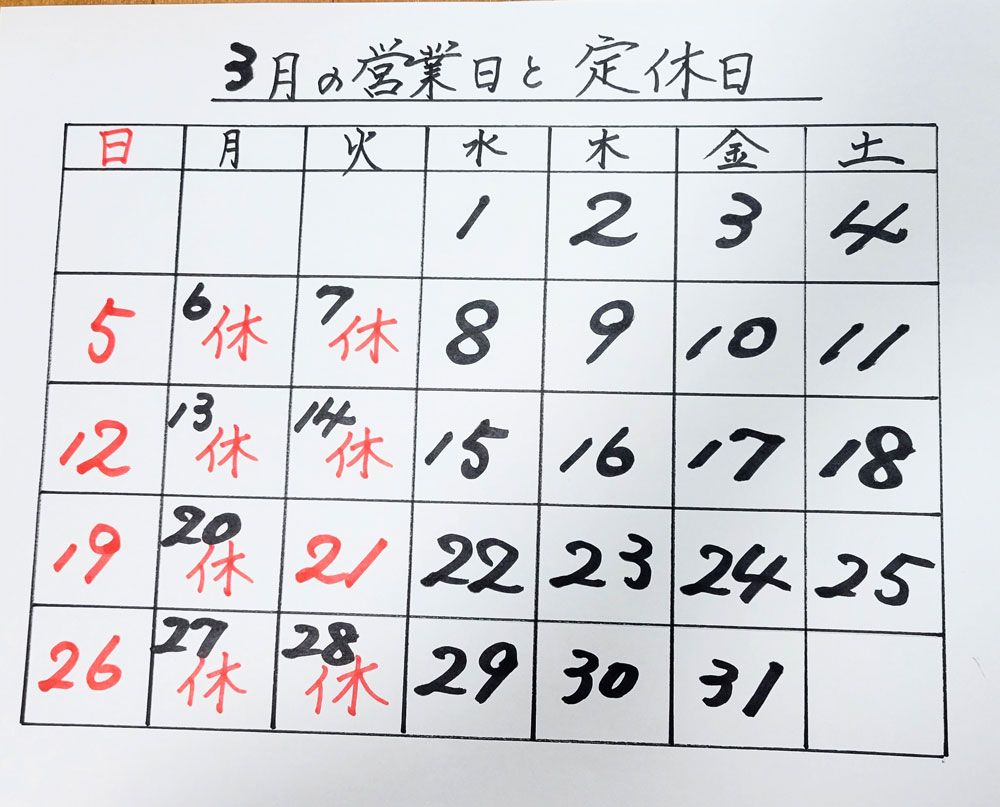 3月の営業日と定休日
日 月 火 水 木 金 土
1 2 3 4
5 6休 7休 8 9 10 11
12 13休 14休 15 16 17 18
19 20休 21 22 23 24 25
26 27休 28休 29 30 31